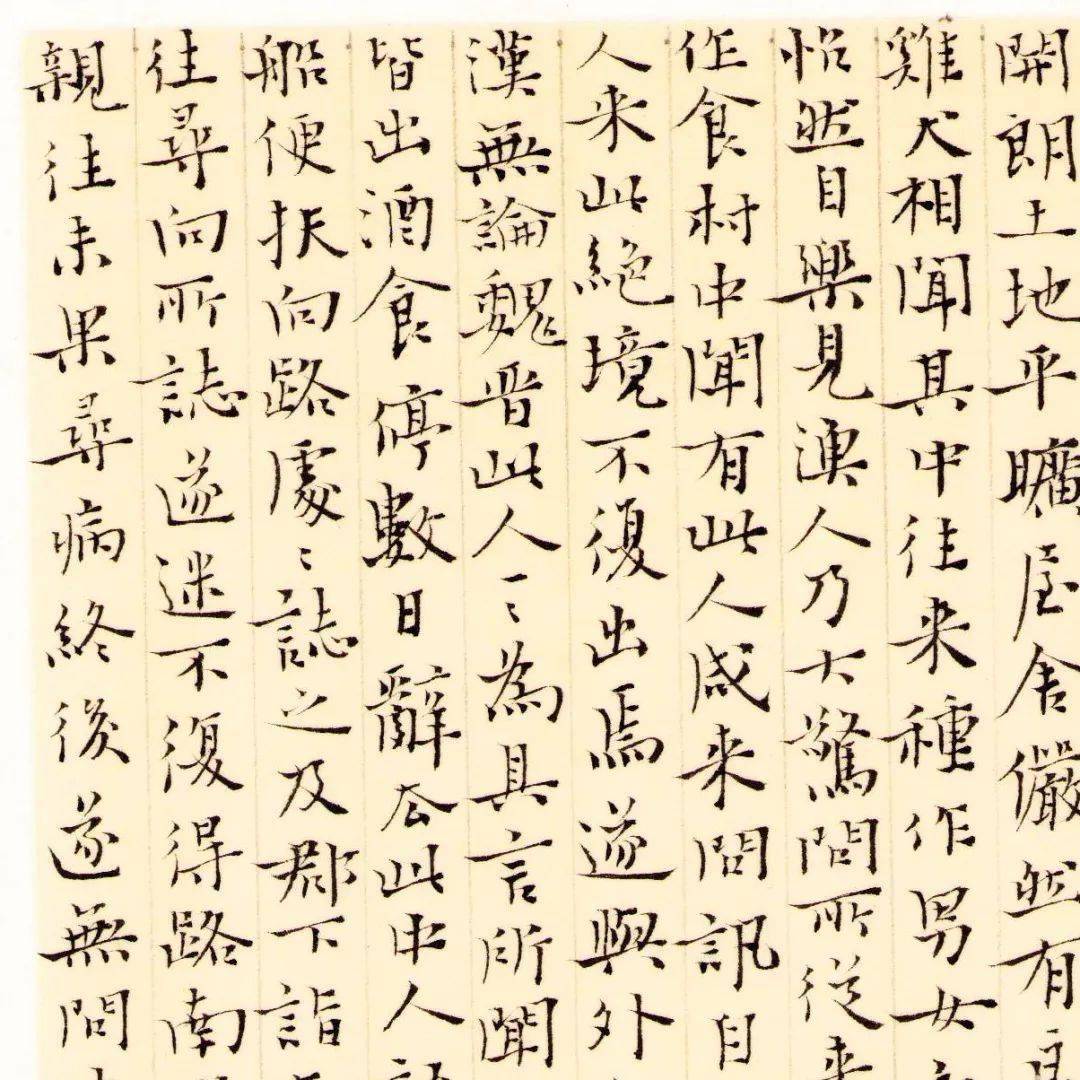 開朗土地平曠屋舍儼然有良
雞犬相聞其中往来種作男女
怡然自樂見漁人乃大驚問所從来
作食村中聞有此人咸来問訊自
人来此絕境不復出焉遂與外
漢無論魏晋此人一〻為具言所聞
皆出酒食停數日辭去此中人語
船便扶向路處〻誌之及郡下詣
往尋向所誌遂迷不復得路南
親往未果尋病終後遂無問